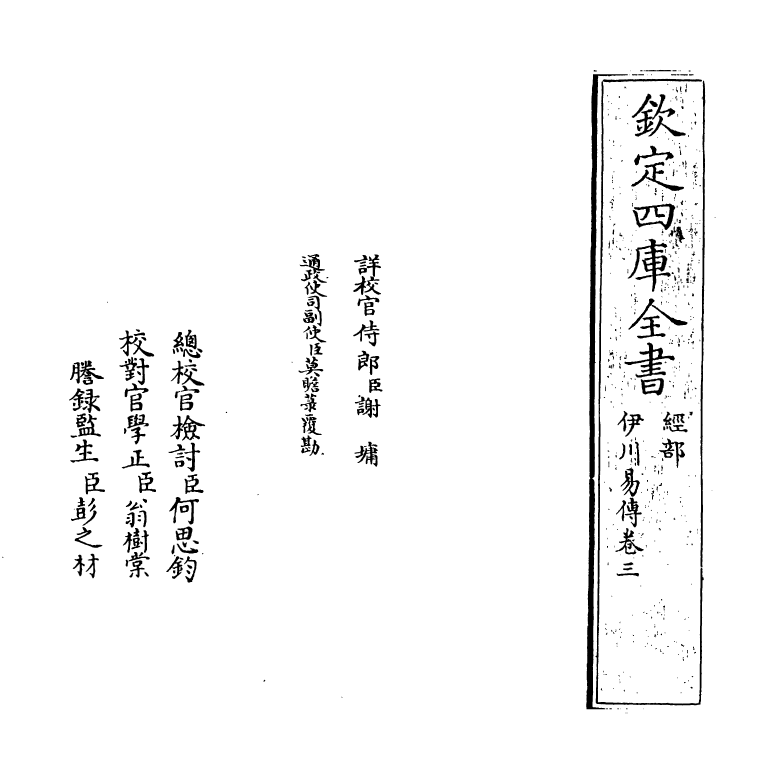 欽定四庫全書
經部
伊川易傳卷三
詳校官侍郎臣謝墉
通政使司副使臣莫瞻菉覆勘
總校官檢討臣何思鈞
校對官學正臣翁樹棠
謄錄監生臣彭之材